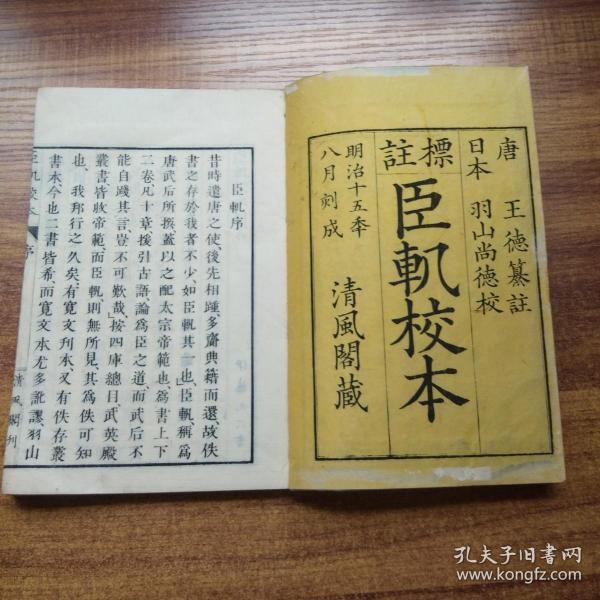 唐 王德纂註
日本 羽山尚德校
標註
臣軌校本
明治十五秊
八月刻成
清風閣藏
臣軌序
昔時遣唐之使、後先相踵、多齎典籍而還、故佚
書之存於我者不少、如臣軌其一也、臣軌、稱爲
唐武后所撰、蓋以之配太宗帝範也、爲書上下
二卷凡十章、援引古語、論爲臣之道、而武后不
能自踐其言、豈不可歎哉、按四庫總目、武英殿
叢書皆收帝範、而臣軌則無所見、其爲佚可知
也、我邦行之久矣、有寬文刊本、又有佚存叢
書本、今也二書皆希、而寬文本尤多訛謬、羽山
臣軌校本 序
清風閣刊
孔夫子旧书网
www.kongfz.com